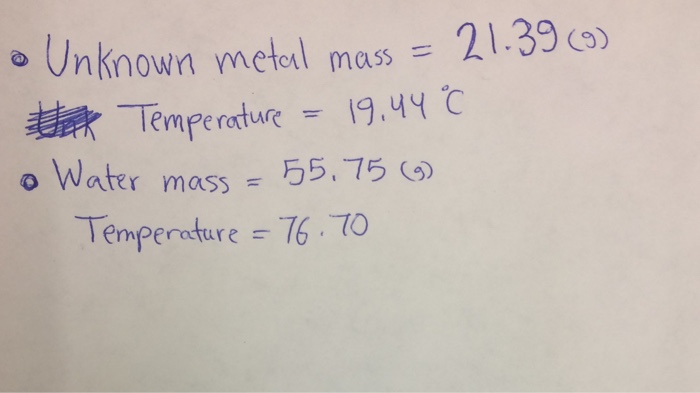 • Unknown metal mass = 21.39 (g)
Temperature = 19.44 °C
• Water mass = 55.75 (g)
Temperature = 76.70